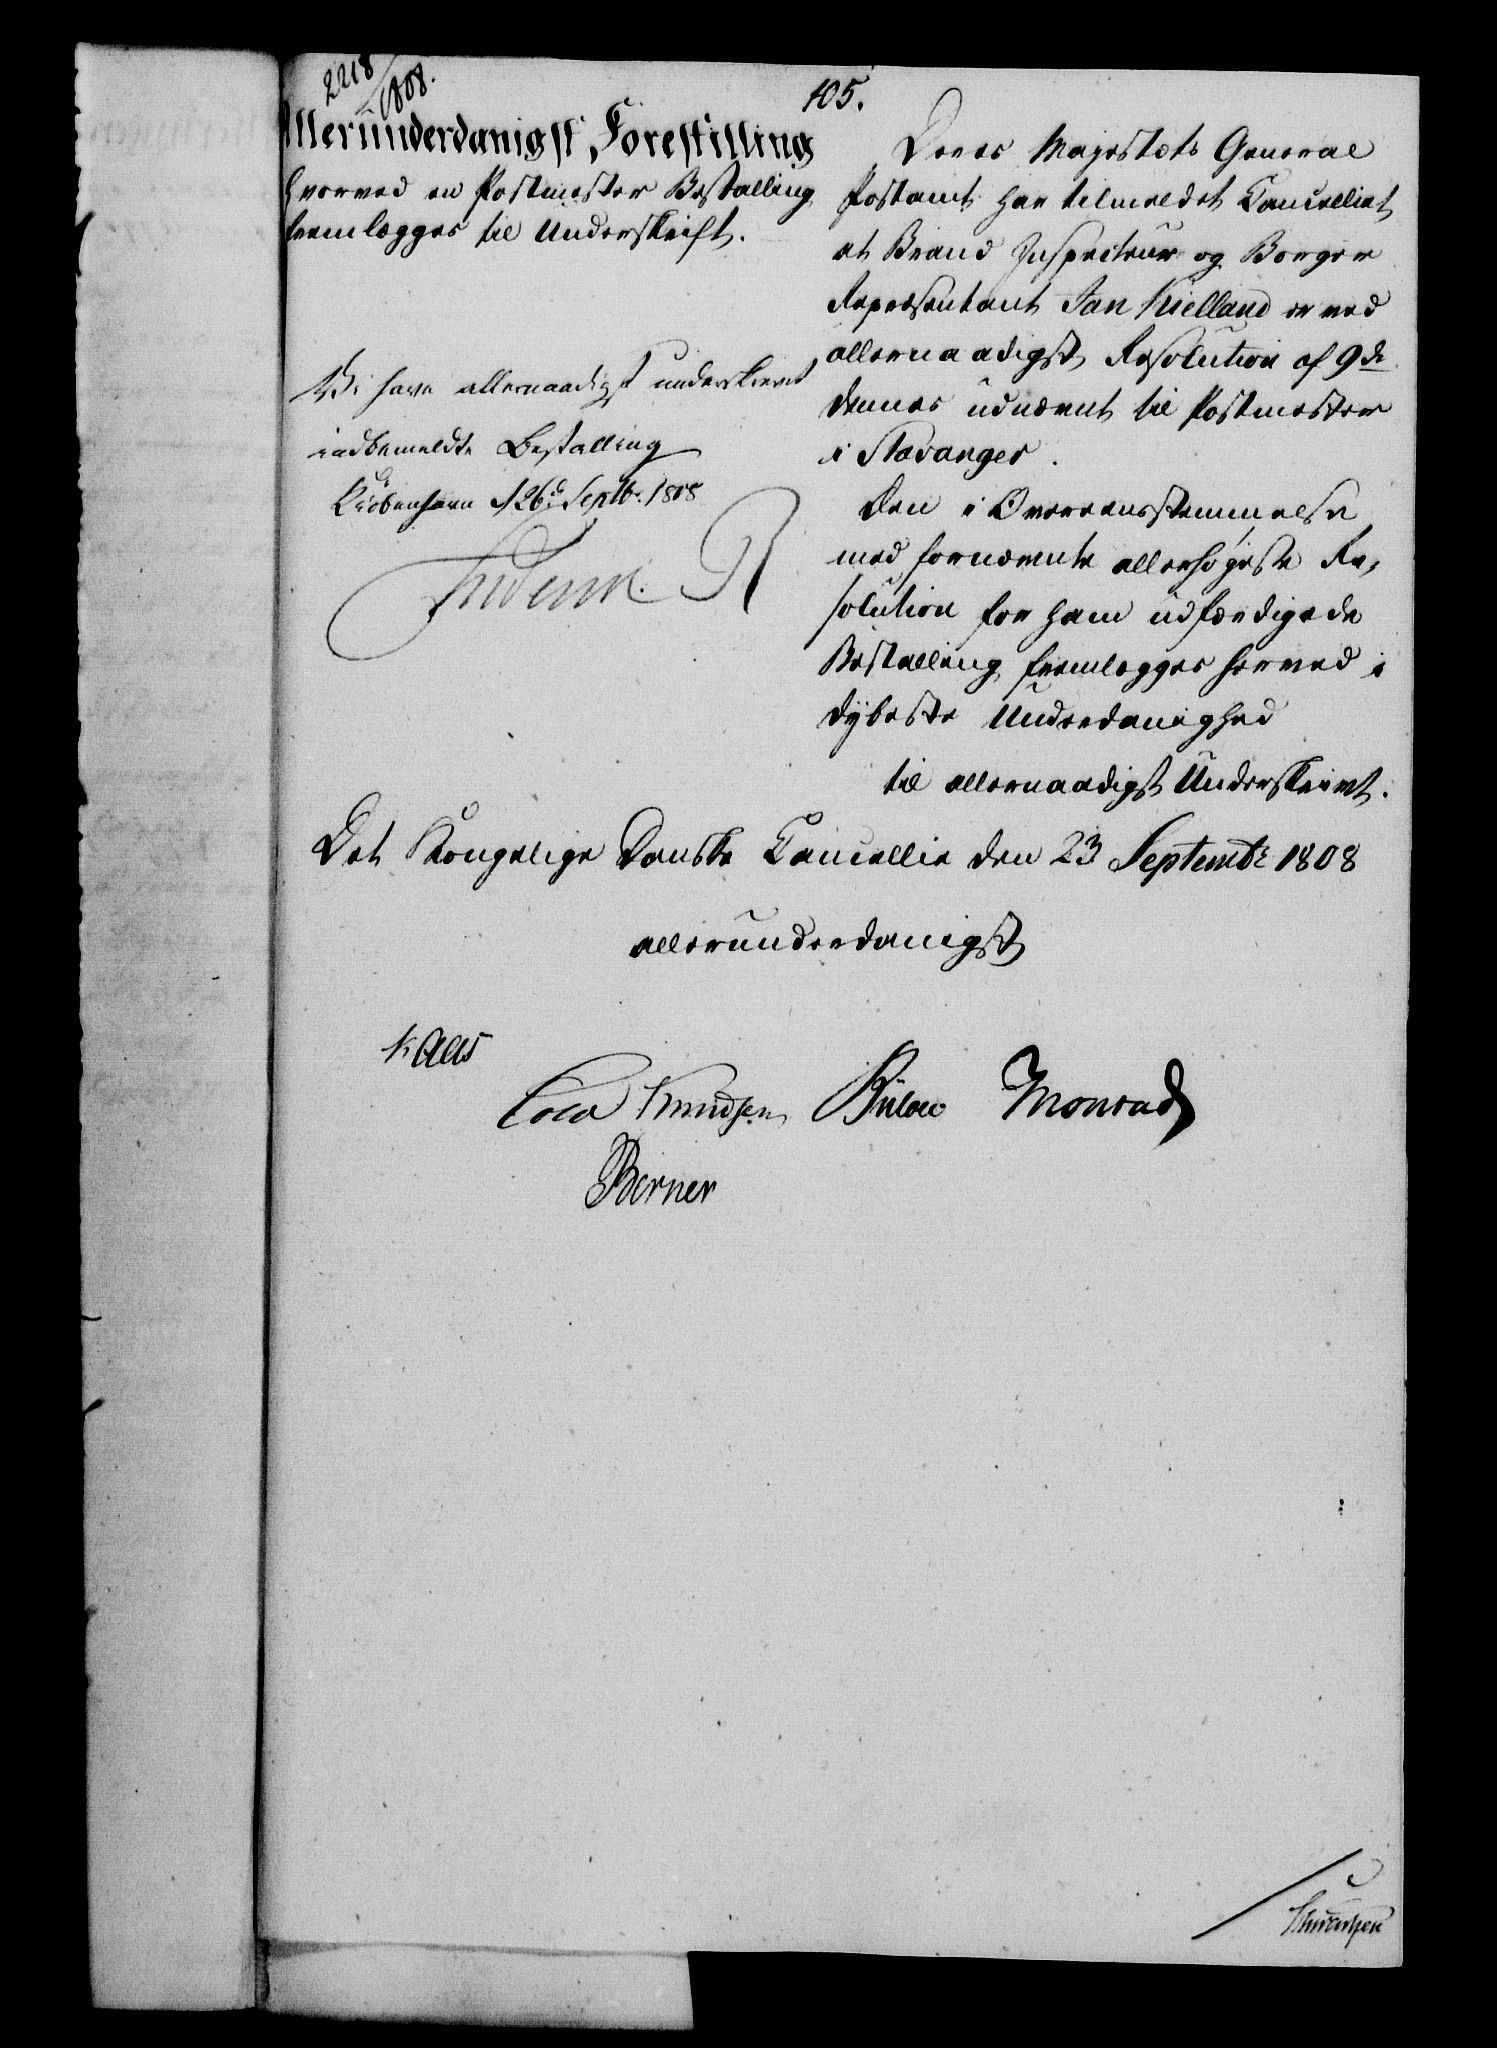 2218/1808.
105.
Allerunderdanigst Forestilling
hvorved en Postmester Bestalling
fremlægges til Underskrift.
Vi have allernaadigst underskrevet
indbemeldte Bestalling
Kiöbenhavn d 26de Septbr. 1808
Frederik R
Deres Majestæts General
Postamt har tilmeldet Cancelliet
at Brand Inspecteur og Borger
Repræsentant Jan Kielland er ved
allernaadigst Resolution af 9de
dennes udnævnt til Postmester
i Stavanger.
Den i Overeensstemmelse
med fornævnte allerhøjeste Re,
solution for ham udfærdigede
Bestalling fremlægges herved i
dÿbeste Underdanighed
til allernaadigst Underskrivt.
Det Kongelige Danske Cancellie den 23 Septembr 1808
allerunderdanigst
Kaas
Cold Knudsen Bülow Monrad
Berner